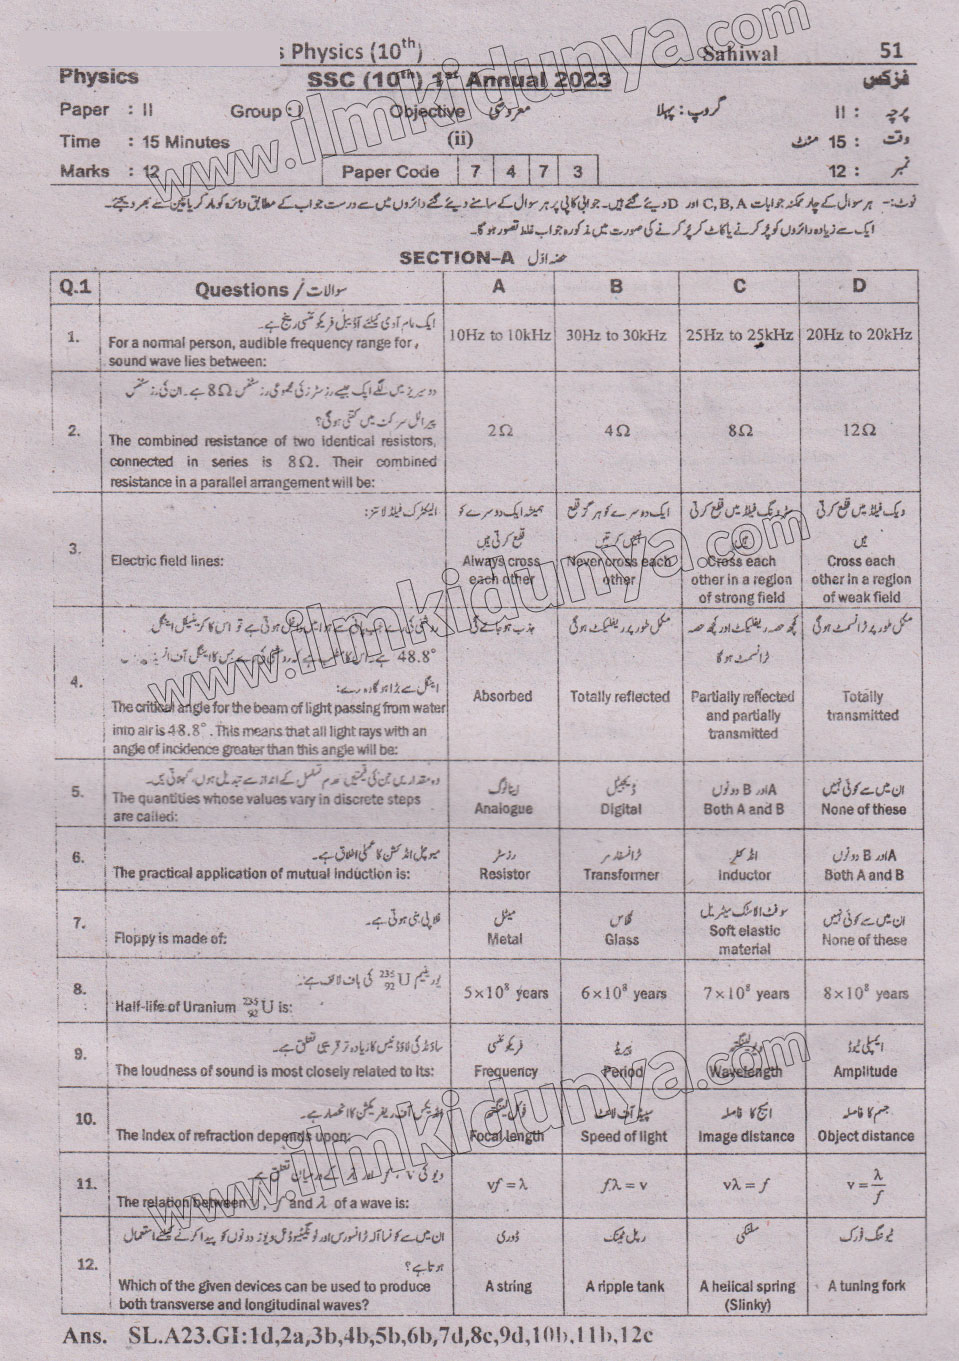 s Physics (10th) Sahiwal 51
Physics SSC (10th) 1st Annual 2023 فزکس
Paper : II Group : I Objective معروضی گروپ : پہلا II : پرچہ
Time : 15 Minutes (ii) وقت : 15 منٹ
Marks : 12 Paper Code 7 4 7 3 نمبر : 12
نوٹ:- ہر سوال کے چار ممکنہ جوابات A, B, C اور D دیئے گئے ہیں۔ جوابی کاپی پر ہر سوال کے سامنے دیئے گئے دائروں میں سے درست جواب کے مطابق دائرہ کو مارکر یا پین سے بھر دیجئے۔
ایک سے زیادہ دائروں کو پُر کرنے یا کاٹ کر پُر کرنے کی صورت میں مذکورہ جواب غلط تصور ہو گا۔
SECTION-A حصہ اوّل
Q.1 Questions / سوالات A B C D
1. ایک عام آدمی کیلئے آڈیبل فریکوئنسی رینج ہے۔
For a normal person, audible frequency range for
sound wave lies between:
10Hz to 10kHz 30Hz to 30kHz 25Hz to 25kHz 20Hz to 20kHz
2. دو سیریز میں لگے ایک جیسے رزسٹرز کی مجموعی رزسٹنس 8Ω ہے۔ ان کی رزسٹنس
پیرالل سرکٹ میں کتنی ہوگی؟
The combined resistance of two identical resistors,
connected in series is 8Ω. Their combined
resistance in a parallel arrangement will be:
2Ω 4Ω 8Ω 12Ω
3. الیکٹرک فیلڈ لائنز:
Electric field lines:
ہمیشہ ایک دوسرے کو
قطع کرتی ہیں
Always cross
each other
ایک دوسرے کو ہرگز قطع
نہیں کرتیں
Never cross each
other
سٹرونگ فیلڈ میں قطع کرتی
ہیں
Cross each
other in a region
of strong field
ویک فیلڈ میں قطع کرتی
ہیں
Cross each
other in a region
of weak field
4. روشنی کی رے جب پانی سے ہوا میں داخل ہوتی ہے تو اس کا کریٹیکل اینگل
48.8° ہے۔ اس کا مطلب ہے کہ روشنی کی رے جس کا اینگل آف
اینگل سے بڑا ہو گا وہ رے:
The critical angle for the beam of light passing from water
into air is 48.8°. This means that all light rays with an
angle of incidence greater than this angle will be:
جذب ہو جائے گی
Absorbed
مکمل طور پر ریفلیکٹ ہوگی
Totally reflected
کچھ حصہ ریفلیکٹ اور کچھ حصہ
ٹرانسمٹ ہو گا
Partially reflected
and partially
transmitted
مکمل طور پر ٹرانسمٹ ہوگی
Totally
transmitted
5. وہ مقداریں جن کی قیمتیں عدم تسلسل کے انداز سے تبدیل ہوں، کہلاتی ہیں۔
The quantities whose values vary in discrete steps
are called:
اینالوگ
Analogue
ڈیجیٹل
Digital
A اور B دونوں
Both A and B
ان میں سے کوئی نہیں
None of these
6. میوچل انڈکشن کا عملی اطلاق ہے۔
The practical application of mutual induction is:
رزسٹر
Resistor
ٹرانسفارمر
Transformer
انڈکٹر
Inductor
A اور B دونوں
Both A and B
7. فلاپی بنی ہوتی ہے۔
Floppy is made of:
میٹل
Metal
گلاس
Glass
سوفٹ الاسٹک میٹیریل
Soft elastic
material
ان میں سے کوئی نہیں
None of these
8. یورینیم ²³⁵₉₂U کی ہاف لائف ہے۔
Half-life of Uranium ²³⁵₉₂U is:
5×10⁸ years 6×10⁸ years 7×10⁸ years 8×10⁸ years
9. ساؤنڈ کی لاؤڈنیس کا زیادہ تر قریبی تعلق ہے۔
The loudness of sound is most closely related to its:
فریکوئنسی
Frequency
پیریڈ
Period
ویولینگتھ
Wavelength
ایمپلی ٹیوڈ
Amplitude
10. انڈیکس آف ریفریکشن کا انحصار ہے۔
The index of refraction depends upon:
فوکل لینگتھ
Focal length
سپیڈ آف لائٹ
Speed of light
امیج کا فاصلہ
Image distance
جسم کا فاصلہ
Object distance
11. ویو کی v، f اور λ کے درمیان تعلق ہے۔
The relation between , f and λ of a wave is:
vf = λ fλ = v vλ = f v = λ/f
12. ان میں سے کونسا آلہ ٹرانسورس اور لونگیٹیوڈنل ویوز دونوں کو پیدا کرنے کیلئے استعمال
ہوتا ہے؟
Which of the given devices can be used to produce
both transverse and longitudinal waves?
ڈوری
A string
رپل ٹینک
A ripple tank
سلنکی
A helical spring
(Slinky)
ٹیوننگ فورک
A tuning fork
Ans. SL.A23.GI:1d,2a,3b,4b,5b,6b,7d,8c,9d,10b,11b,12c
www.ilmkidunya.com
www.ilmkidunya.com
www.ilmkidunya.com